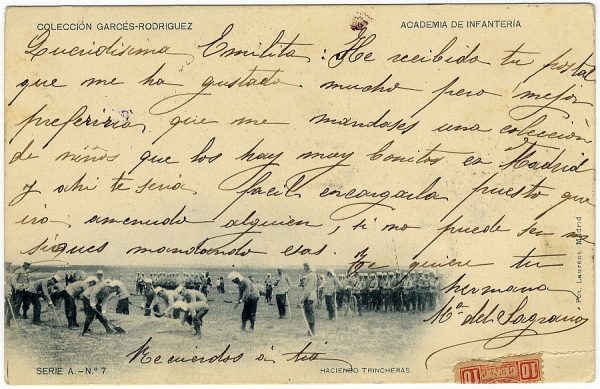 COLECCIÓN GARCÉS-RODRIGUEZ
ACADEMIA DE INFANTERÍA
Queridisima Emilita: He recibido tu postal
que me ha gustado mucho pero mejor
preferiria que me mandases una colección
de niños que los hay muy bonitos en Madrid
y ahi te sería facil encargarla puesto que
irá amenudo alguien, si no puede ser me
sigues mandando esas. Te quiere tu
hermana
Mª del Sagrario
Recuerdos á tia
SERIE A.-N.º 7
HACIENDO TRINCHERAS
Fot. Laurent Madrid
10 10